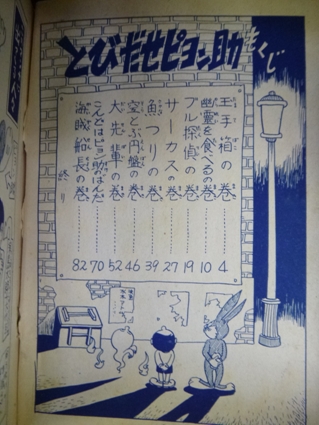 とびだせピョン助
もくじ
玉手箱の巻………4
幽霊を食べるの巻………10
ブル探偵の巻………19
サーカスの巻………27
魚つりの巻………39
空とぶ円盤の巻………46
大先輩の巻………52
こんどはピョン助のばんだ………70
海賊船長の巻………82
終り